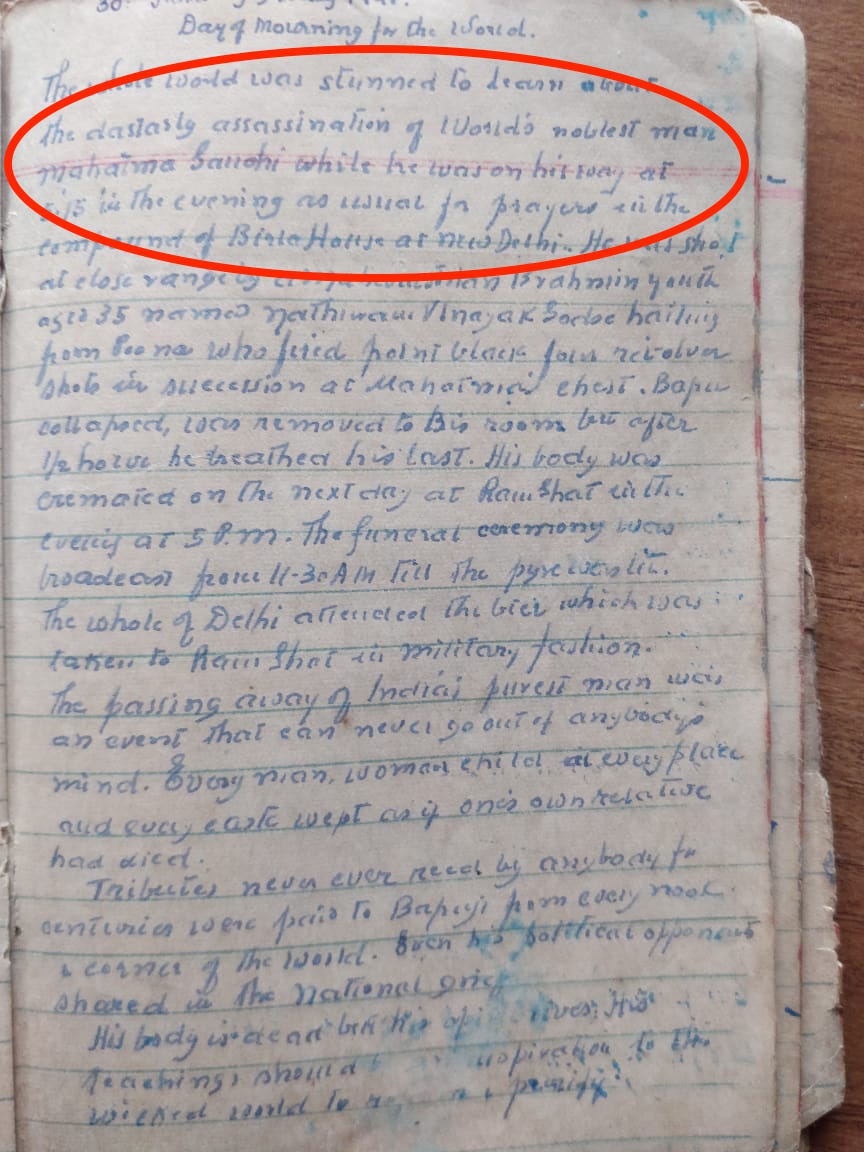 30
Day of Mourning for the World.
The whole world was stunned to learn about
the dastardly assassination of World's noblest man
Mahatma Gandhi while he was on his way at
5.15 in the evening as usual for prayers in the
compound of Birla House at New Delhi. He was shot
at close range by Brahmin youth
aged 35 named Nathuram Vinayak Godse hailing
from Poona who fired point black four revolver
shots in succession at Mahatma's chest. Bapu
collapsed, was removed to His room but after
1/2 hour he breathed his last. His body was
cremated on the next day at Ram Ghat in the
evening at 5 P.M. The funeral ceremony was
broadcast from 11-30 AM till the pyre was lit.
The whole of Delhi attended the bier which was
taken to Ram Ghat in military fashion.
The passing away of India's purest man was
an event that can never go out of anybody's
mind. Every man, woman child at every place
and every caste wept as if one's own relative
had died.
Tributes never ever read by anybody for
centuries were paid to Bapuji from every nook
& corner of the world. Even his political opponents
shared in the National grief
His body is dead but his lives. His
teachings should inspiration to this
wicked world to purify.